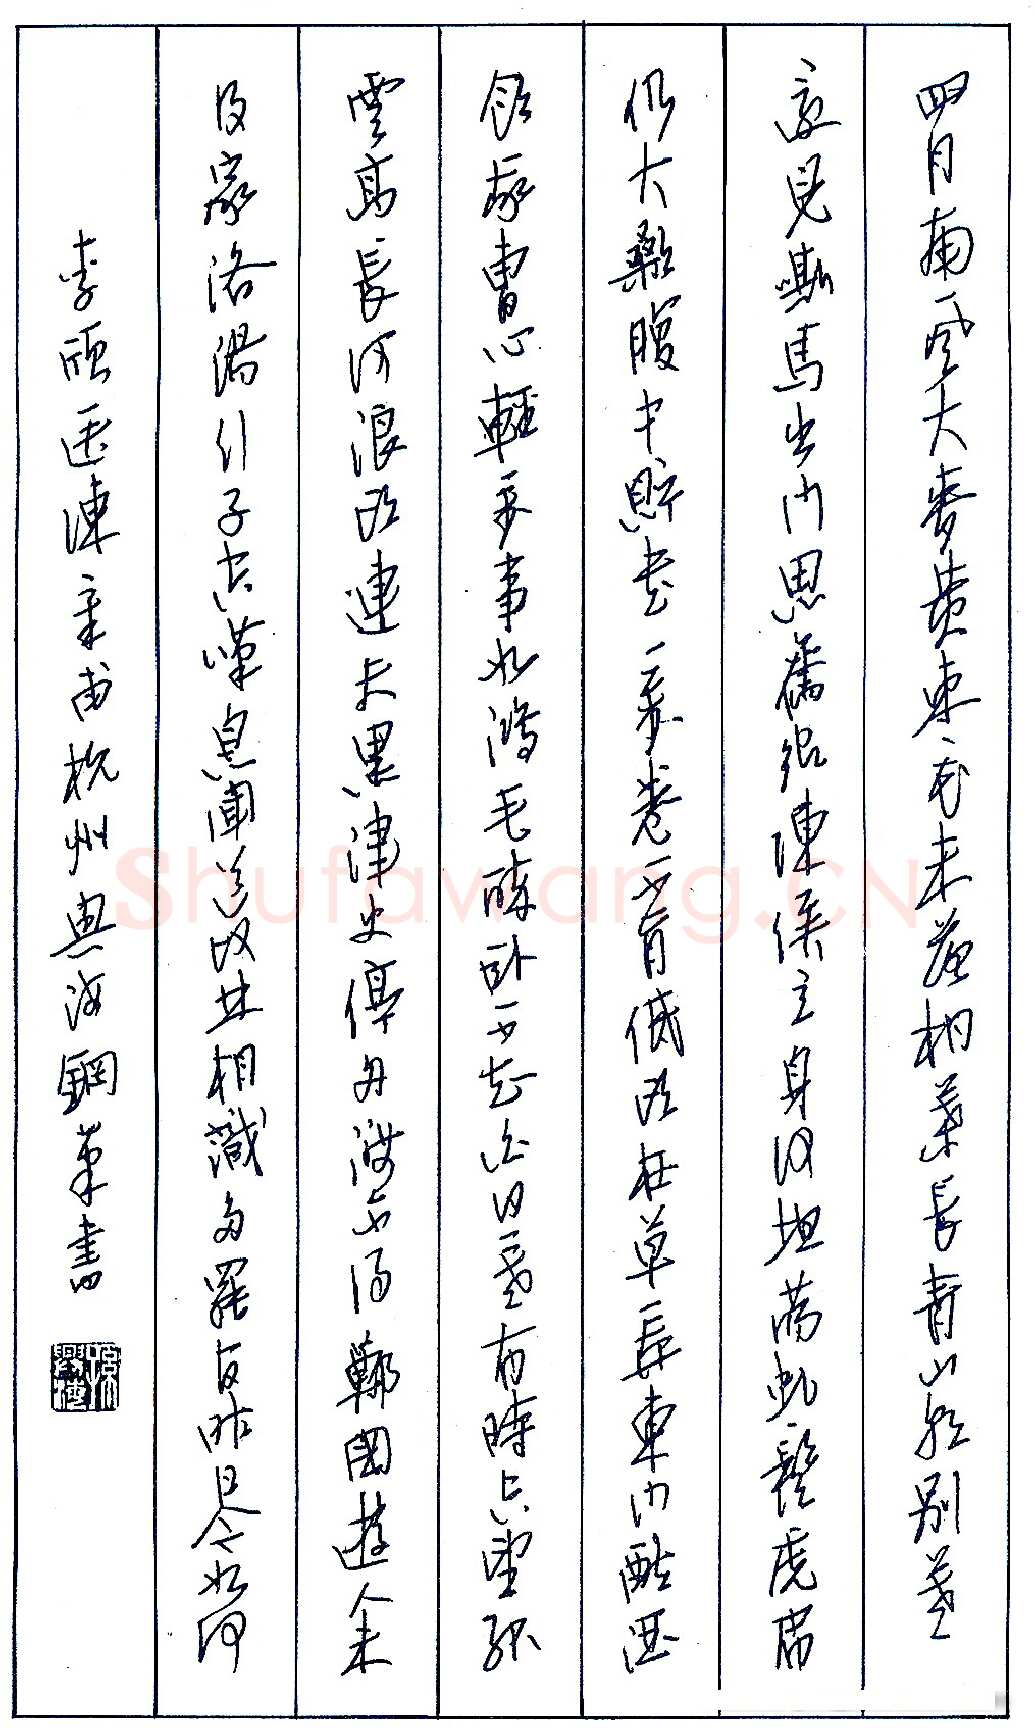 四月南風大麥黃棗花未落桐葉長青山朝別暮
還見嘶馬出門思舊鄉陳侯立身何坦蕩虬鬚虎眉
仍大顙腹中貯書一萬卷不肯低頭在草莽東門酤酒
飲我曹心輕萬事如鴻毛醉臥不知白日暮有時空望孤
雲高長河浪頭連天黑津吏停舟渡不得鄭國遊人未
及家洛陽行子空嘆息聞道故林相識多罷官昨日今如何
李頎送陳章甫杭州興海鋼筆書
Shufawang.CN